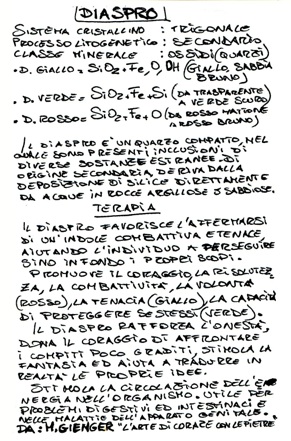 DIASPRO
SISTEMA CRISTALLINO : TRIGONALE
PROCESSO LITOGENETICO : SECONDARIO
CLASSE MINERALE : OSSIDI (QUARZI)
• D. GIALLO = SiO2, Fe, O, OH (GIALLO SABBIA
BRUNO)
• D. VERDE = SiO2, Fe + Si (DA TRASPARENTE
A VERDE SCURO)
• D. ROSSO = SiO2, Fe + O (DA ROSSO MATTONE
A ROSSO BRUNO)
IL DIASPRO E' UN QUARZO COMPATTO, NEL
QUALE SONO PRESENTI INCLUSIONI DI
DIVERSE SOSTANZE ESTRANEE. DI
ORIGINE SECONDARIA, DERIVA DALLA
DEPOSIZIONE DI SILICE DIRETTAMENTE
DA ACQUE IN ROCCE ARGILLOSE E SABBIOSE.
TERAPIA
IL DIASPRO FAVORISCE L'AFFERMARSI
DI UN'INDOLE COMBATTIVA E TENACE,
AIUTANDO L'INDIVIDUO A PERSEGUIRE
SINO IN FONDO I PROPRI SCOPI.
PROMUOVE IL CORAGGIO, LA RISOLUTEZ-
ZA, LA COMBATTIVITA', LA VOLONTA'
(ROSSO), LA TENACIA (GIALLO), LA CAPACITA'
DI PROTEGGERE SE STESSI (VERDE).
IL DIASPRO RAFFORZA L'ONESTA',
DONA IL CORAGGIO DI AFFRONTARE
I COMPITI POCO GRADITI, STIMOLA LA
FANTASIA ED AIUTA A TRADURRE IN
REALTA' LE PROPRIE IDEE.
STIMOLA LA CIRCOLAZIONE DELL'E-
NERGIA NELL'ORGANISMO. UTILE PER
PROBLEMI DIGESTIVI ED INTESTINALI E
NELLE MALATTIE DELL'APPARATO GENITALE.
DA: M. GIENGER "L'ARTE DI CURARE CON LE PIETRE